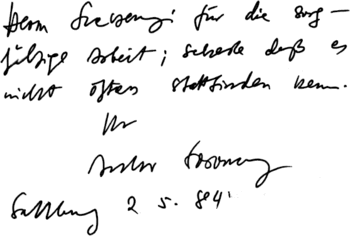 Herrn für die sorg-
fältige Arbeit; schade daß es
nicht öfters stattfinden kann.
Ihr
Salzburg 2 5. 84